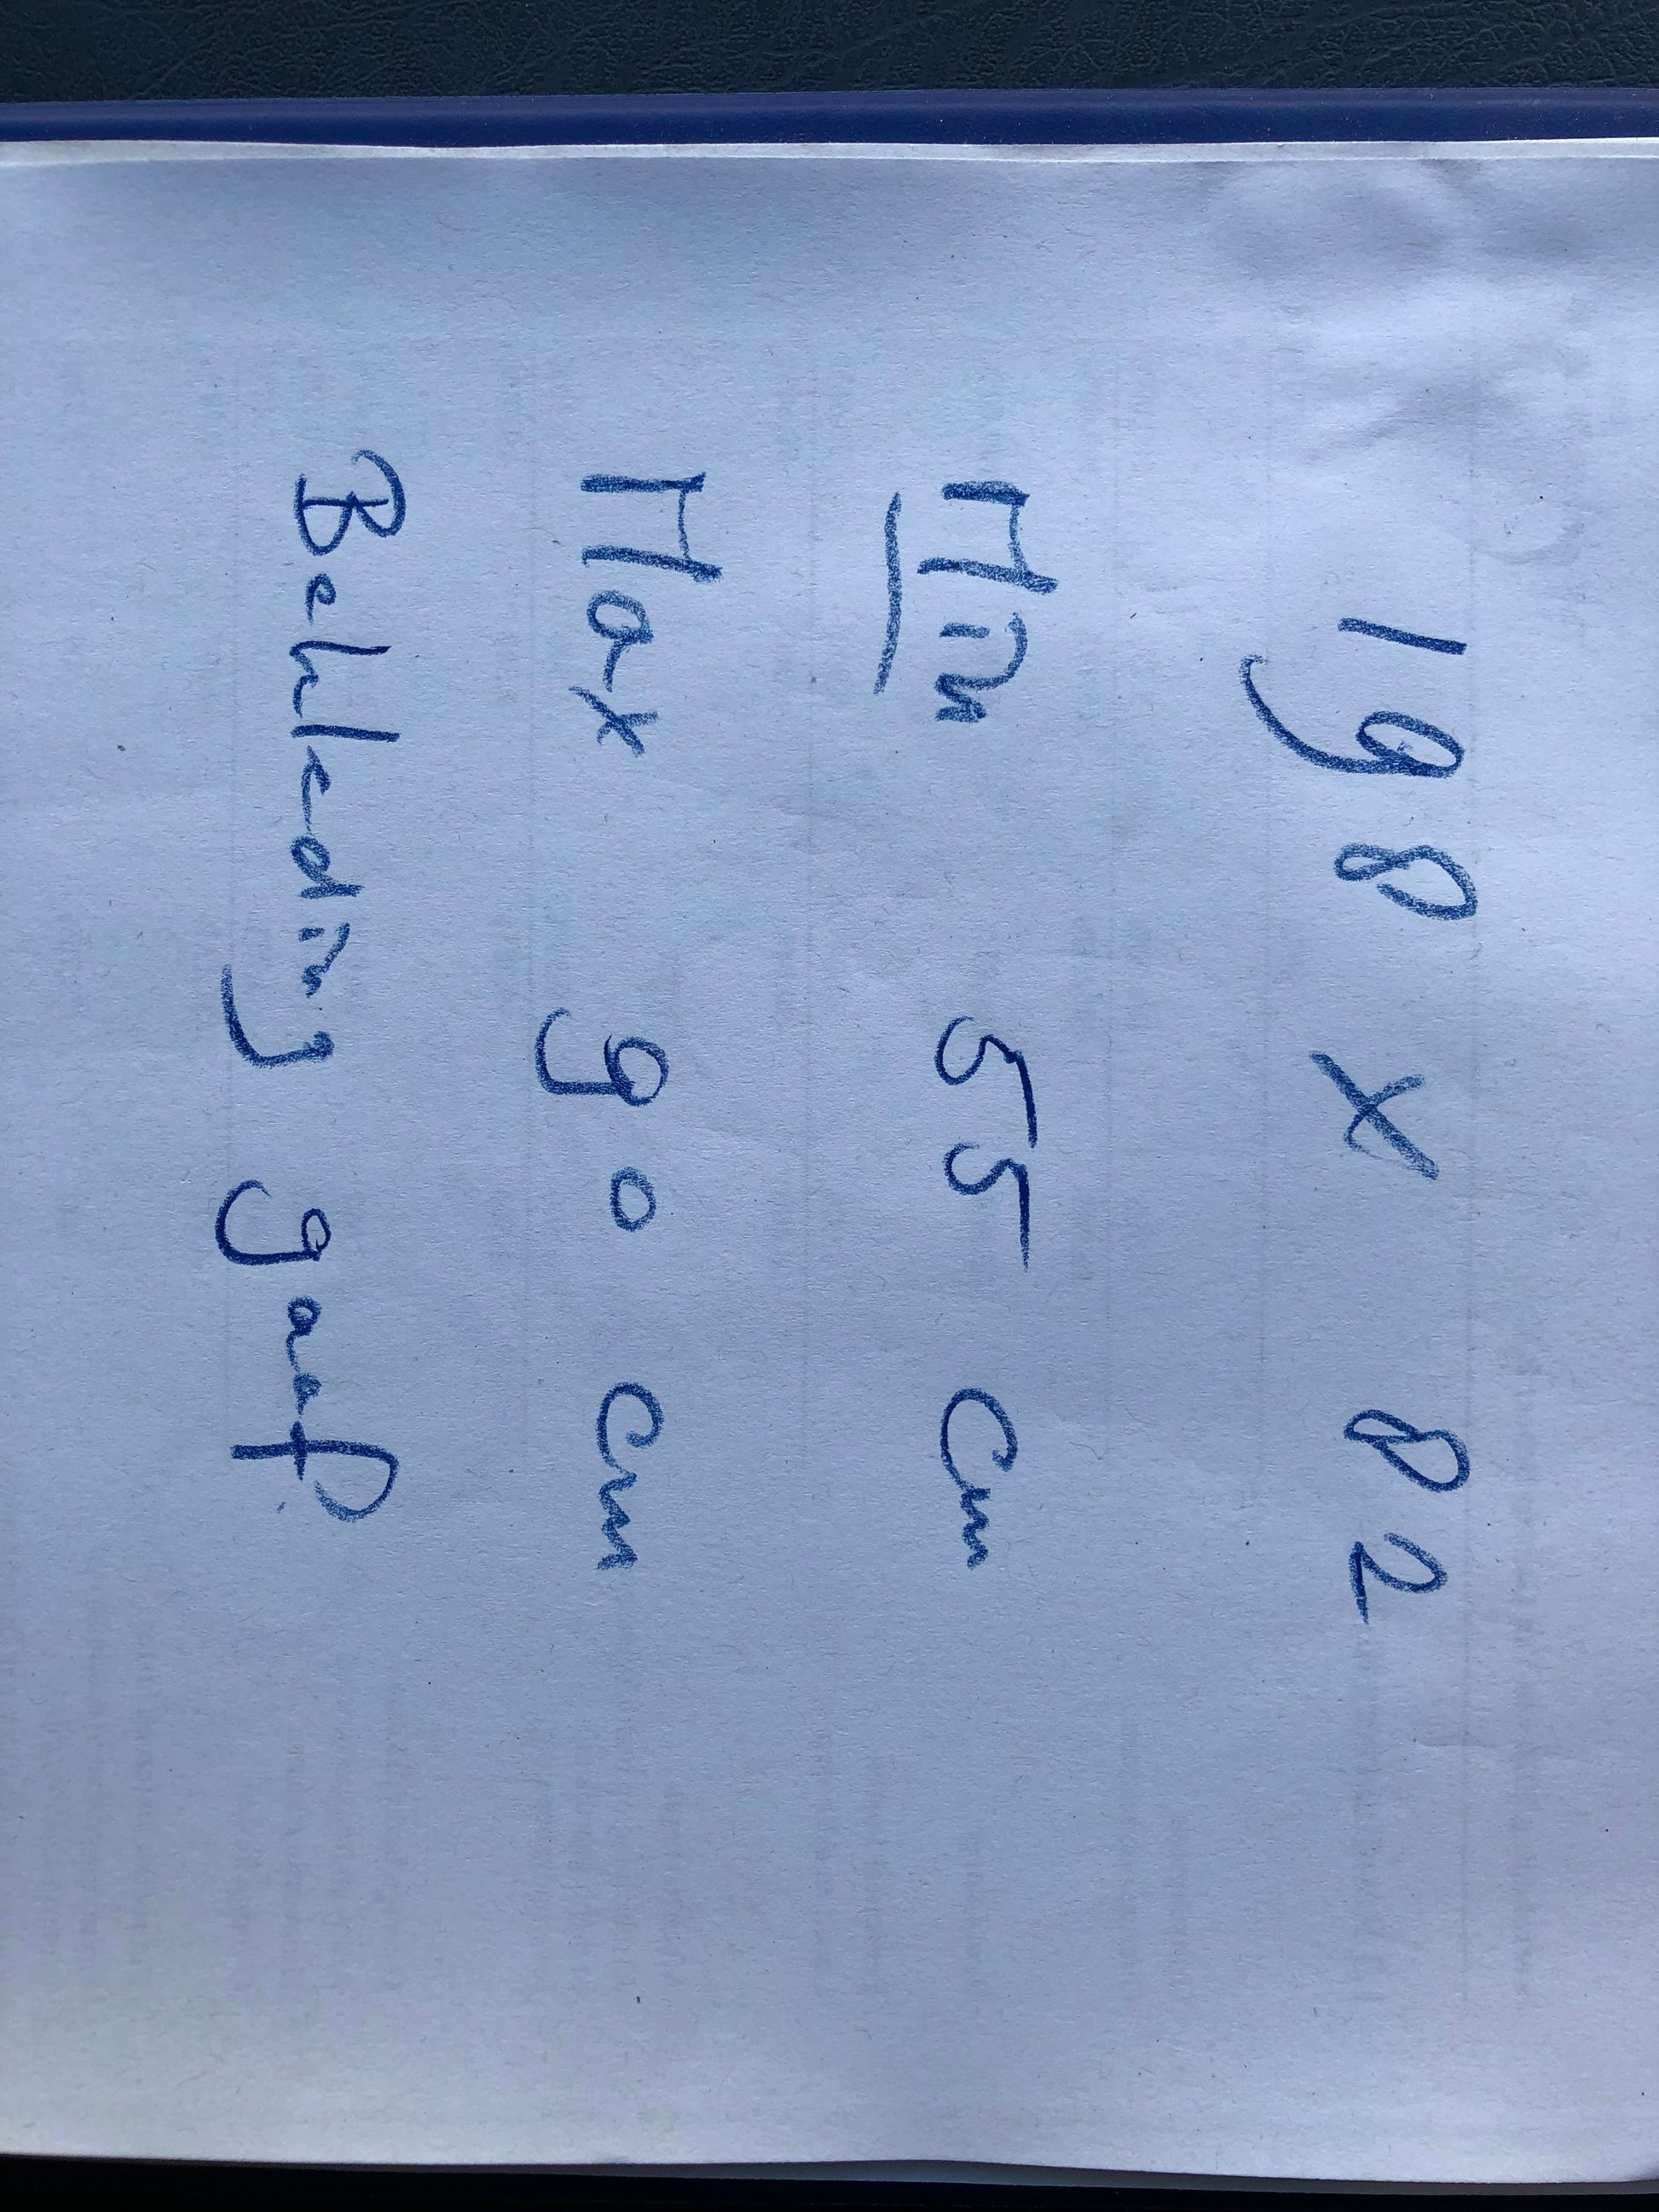 198 x 82
Min 55 cm
Max 90 cm
Bekleding gaaf